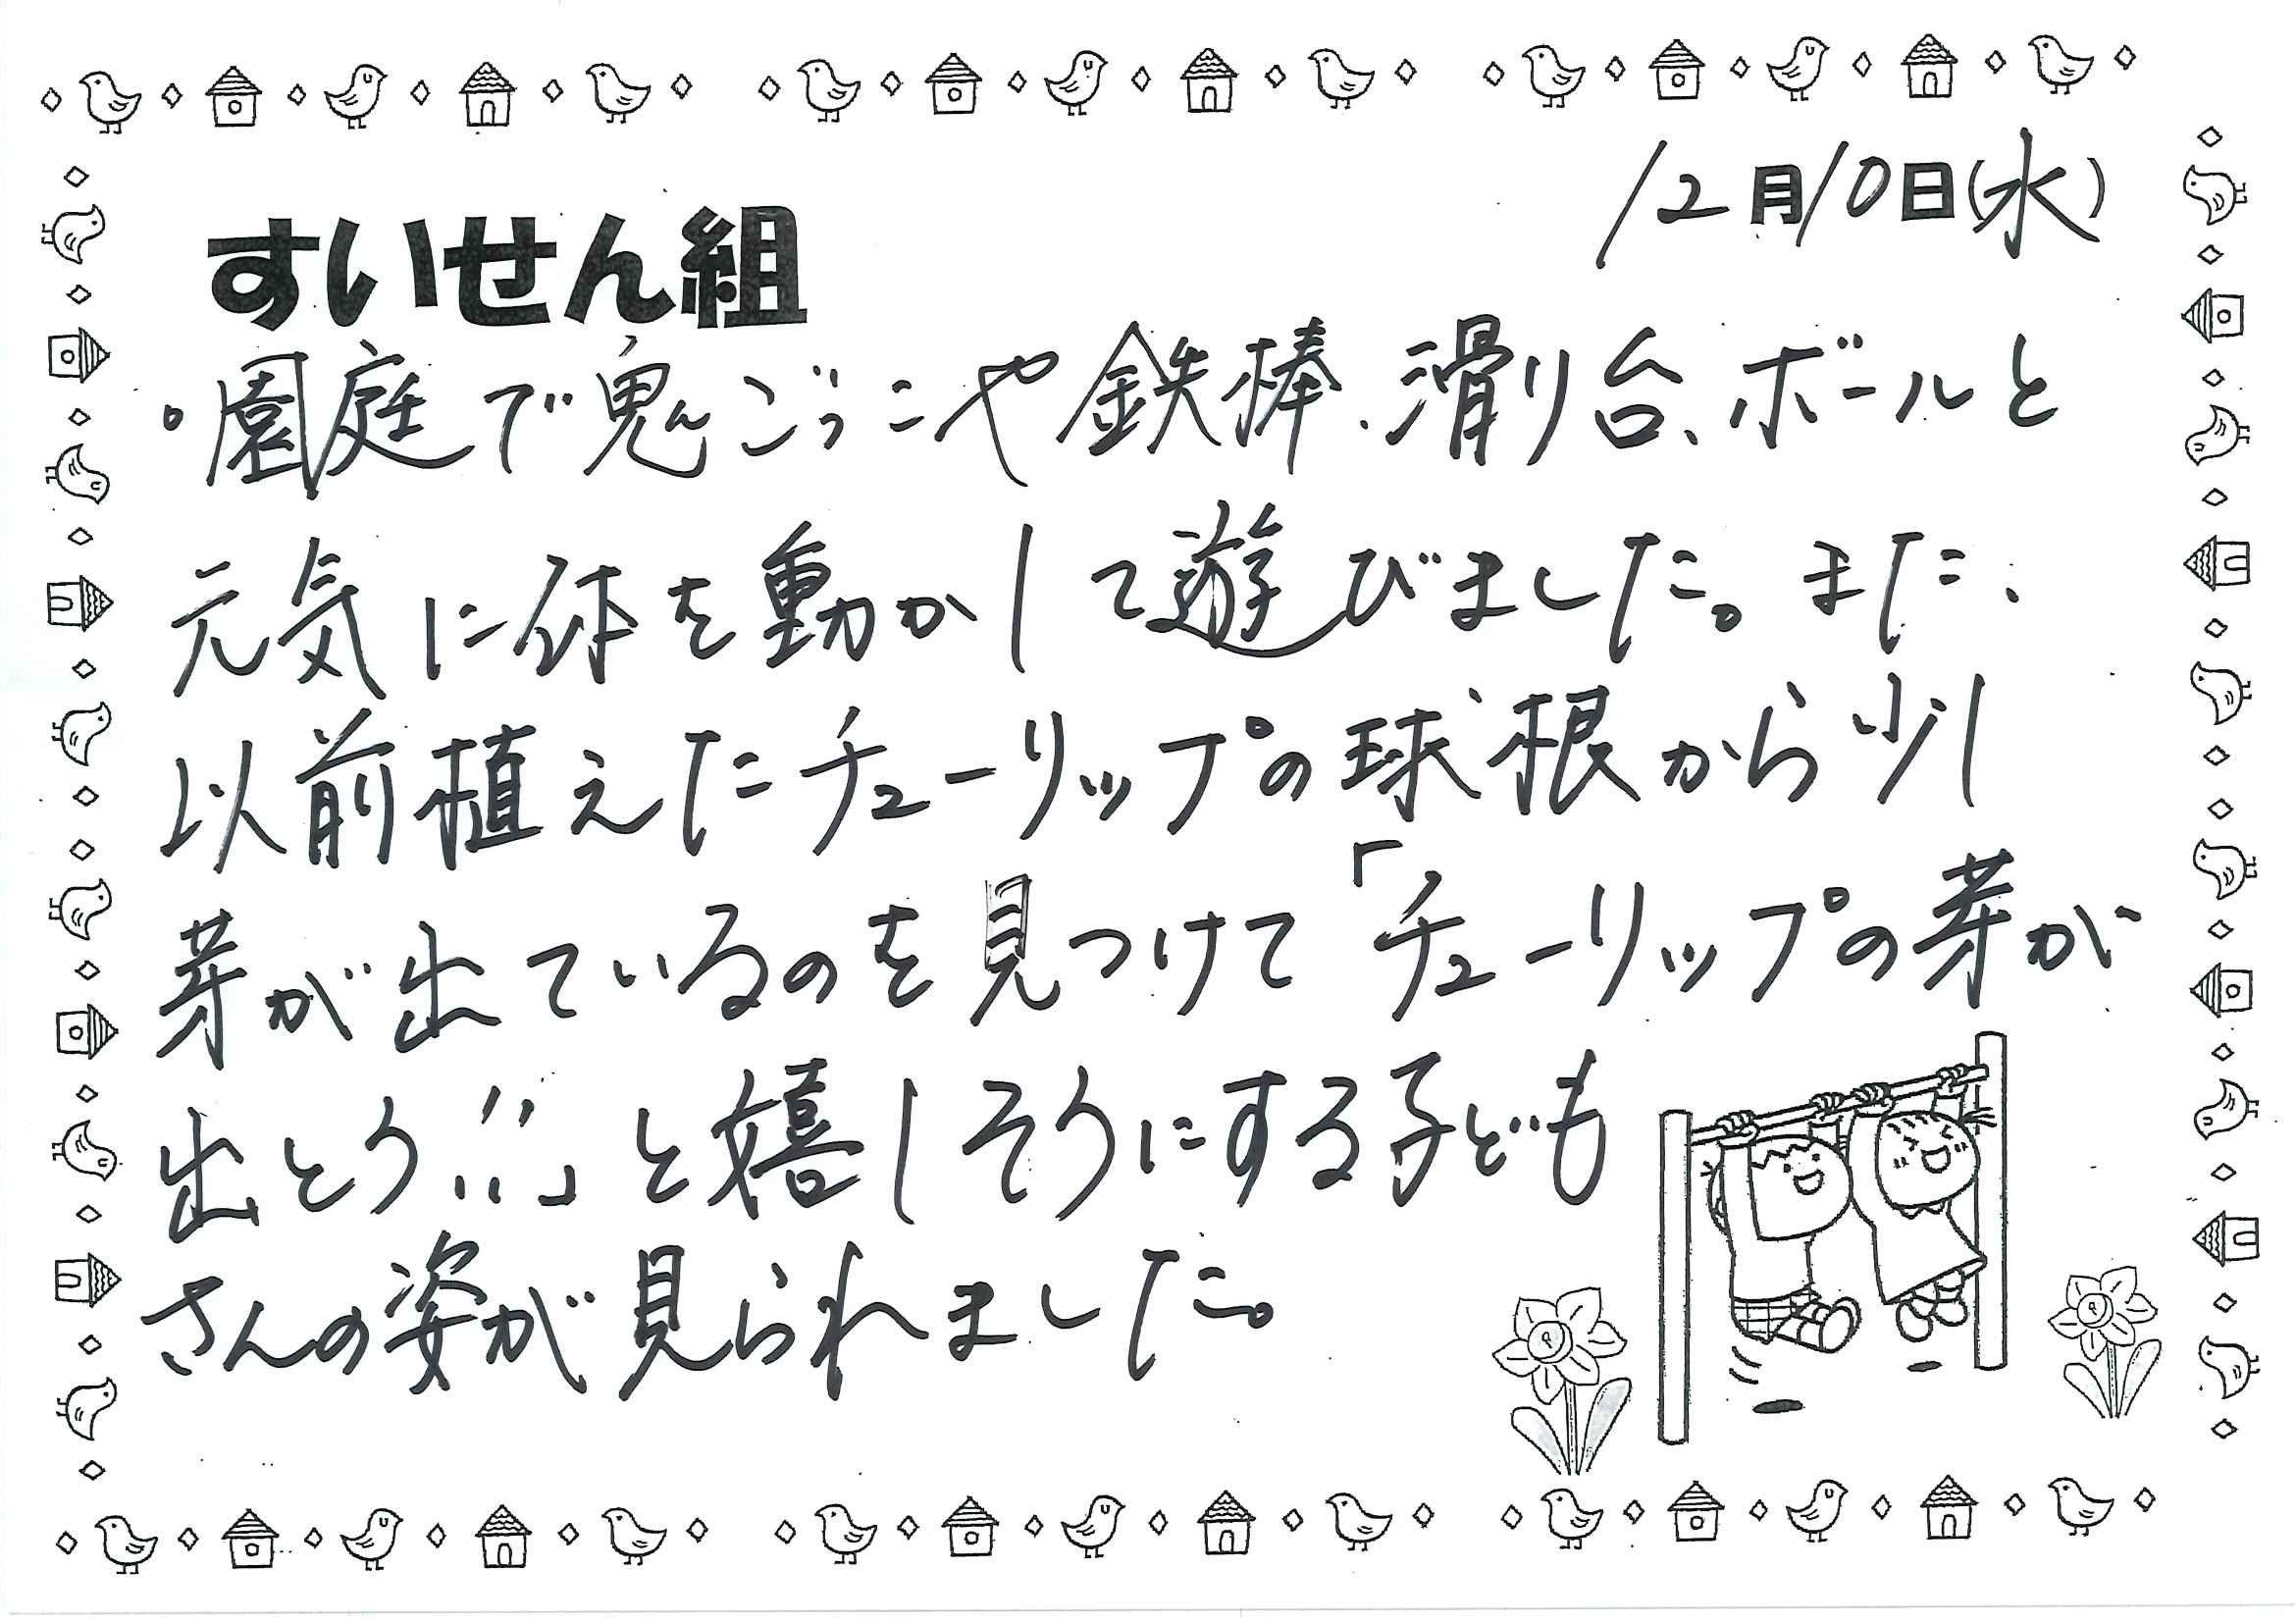 12月10日(水)
すいせん組
。園庭で鬼ごっこや鉄棒、滑り台、ボールと
元気に体を動かして遊びました。また、
以前植えたチューリップの球根から少し
芽が出ているのを見つけて「チューリップの芽が
出とう!!」と嬉しそうにする子ども
さんの姿が見られました。